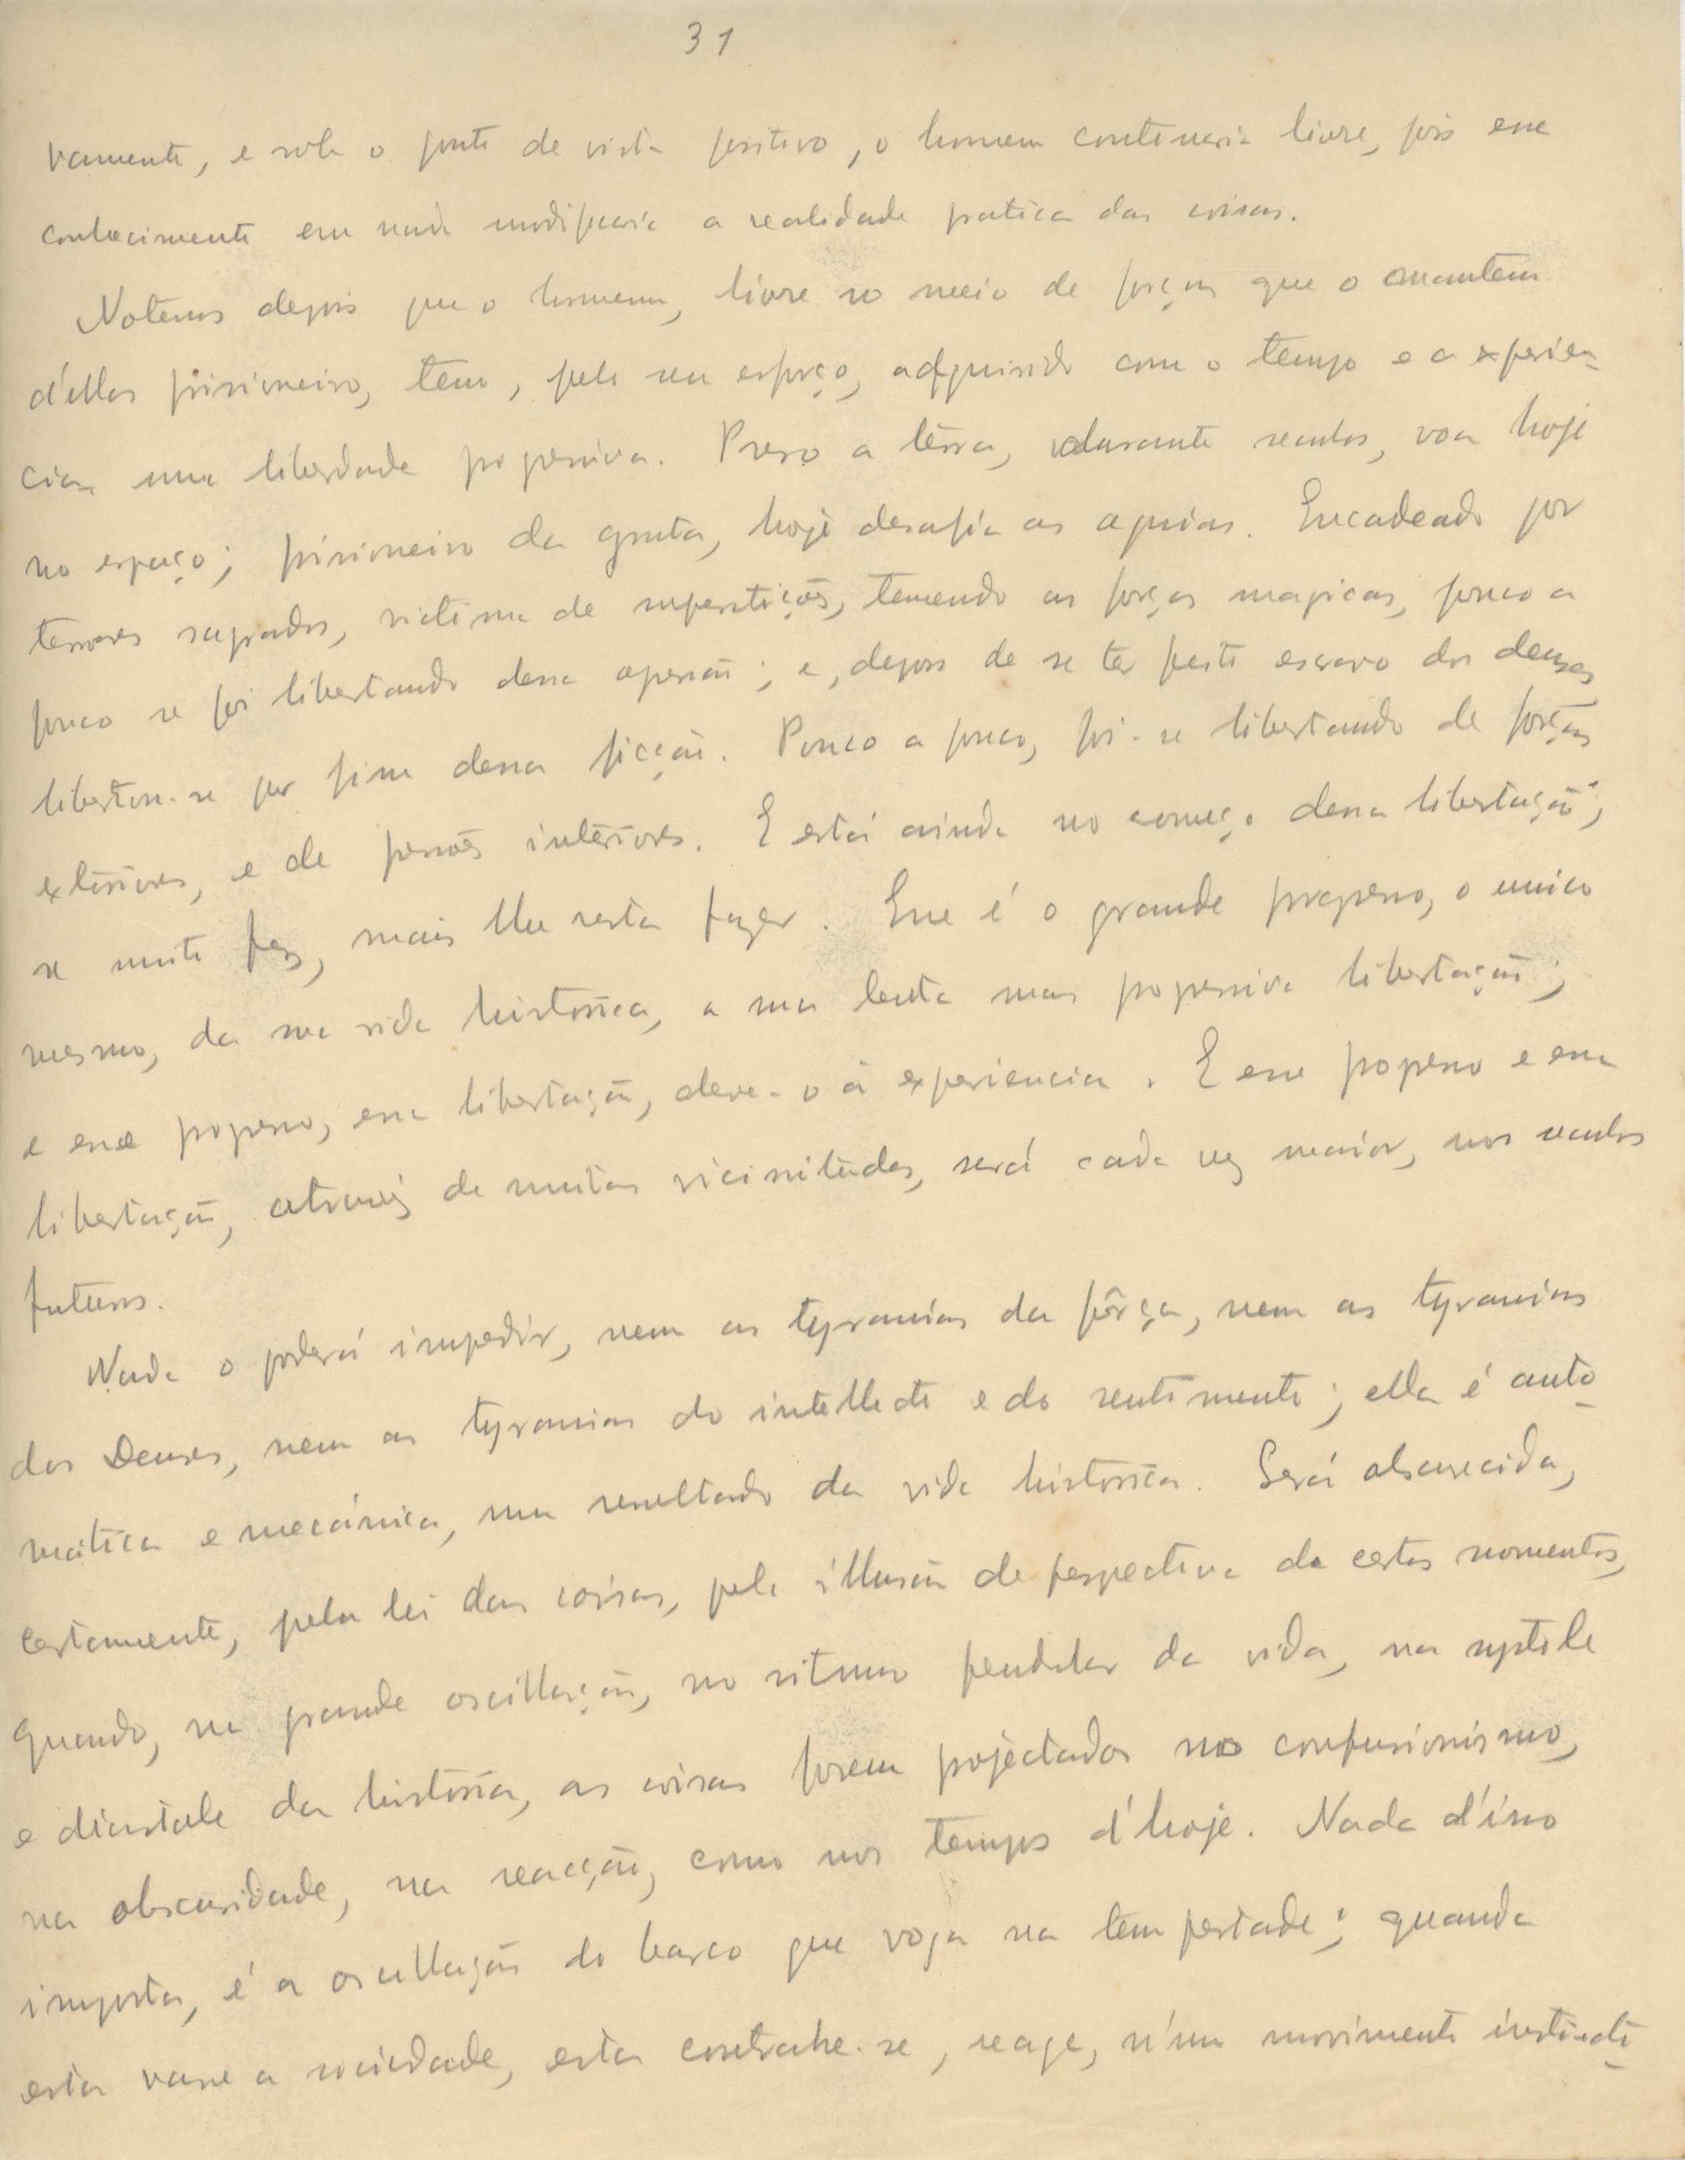 31
vamente, e sob o ponto de vista positivo, o homem continuaria livre, pois esse
conhecimento em nada modificaria a realidade pratica das coisas.
Notemos depois que o homem, livre no meio de forças que o mantem
d'ellas prisioneiro, tem, pelo seu esforço, adquirido com o tempo e a experien-
cia uma liberdade progressiva. Preso a terra, durante seculos, voa hoje
no espaço; prisioneiro da gruta, hoje desafia as aguias. Encadeado por
terrores sagrados, victima de superstições, temendo as forças magicas, pouco a
pouco se foi libertando dessa opressão; e, depois de se ter feito escravo dos deuses
libertou-se por fim dessa ficção. Pouco a pouco, foi-se libertando de forças
exteriores, e de pressões interiores. E está ainda no começo dessa libertação;
se muito fez, mais lhe resta fazer. Esse é o grande progresso, o unico
mesmo, da sua vida historica, a sua lenta mas progressiva libertação;
e esse progresso, essa libertação, deve-o á experiencia. E esse progresso e essa
libertação, atravez de muitas vicissitudes, será cada vez maior, nos seculos
futuros.
Nada o poderá impedir, nem as tyranias da fôrça, nem as tyranias
dos Deuses, nem as tyranias do intellecto e do sentimento; ella é auto-
mática e mecánica, um resultado da vida historica. Será obscurecida,
certamente, pela lei das coisas, pela illusão de perspectiva de certos momentos,
quando, na grande oscillação, no ritmo pendular da vida, na systole
e diastole da historia, as coisas forem projectadas no confusionismo,
na obscuridade, na reacção, como nos tempos d'hoje. Nada d'isso
importa, é a oscillação do barco que voga na tempestade; quando
esta varre a sociedade, esta contrahe-se, reage, n'um movimento instincti-